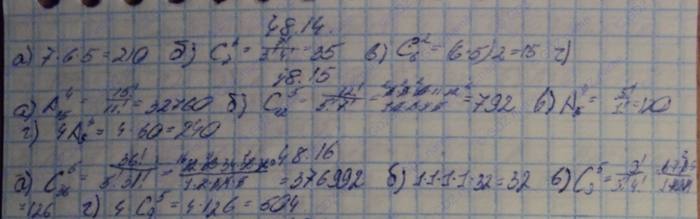 48.14.
а) 7·6·5=210 б) C₇⁴ = 7!/3!4! = 35 в) C₆² = 6·5/2=15 г)
48.15
а) A₁₅⁴ = 15!/11! = 32760 б) C₁₂⁵ = 12!/5!7! = = 792 в) A₅⁴ = 5!/1! = 120
г) 4A₅⁴ = 4·60 = 240
48.16
а) C₃₆⁵ = 36!/5!31! = = 376992 б) 1·1·1·1·32=32 в) C₉⁵ = 9!/5!4!
=126 г) 4C₉⁵ = 4·126 = 504